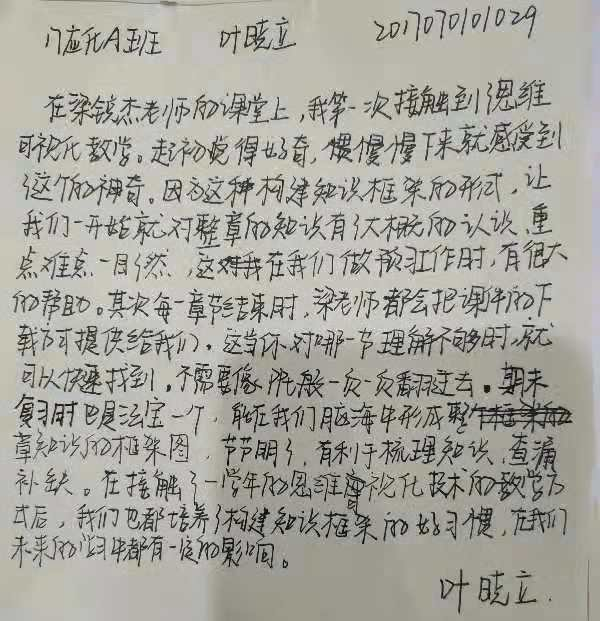 17应化A班 叶晓立 2017070101029
在梁镜杰老师的课堂上，我第一次接触到了思维
可视化教学。起初觉得好奇，慢慢下来就感受到
了这个的神奇。因为这种构建知识框架的形式，让
我们一开始就对整章的知识有了大概的认识，重
点难点一目了然，这在我们做预习工作时，有很大
的帮助。其次每一章节结束时，梁老师都会把课件的下
载方式提供给我们。这当你对哪一节理解不够时，就
可以快速找到，不需要像一页一页翻过去。期末
复习时也是法宝一个，能在我们脑海中形成整
章知识的框架图，节节明了，有利于梳理知识，查漏
补缺。在接触了一学年的思维可视化技术的教学方
式后，我们也都培养了构建知识框架的好习惯，在我们
未来的学习中都有一定的影响。
叶晓立